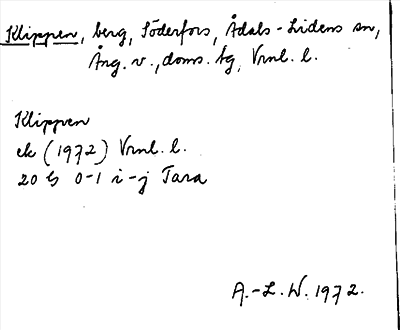 Klippen, berg, Söderfors, Ådals-Lidens sn,
Ång. v., doms. tg, Vrnl. l.
Klippen
ek (1972) Vrnl. l.
20 G 0-1 i-j Tara
A.-L. W. 1972.